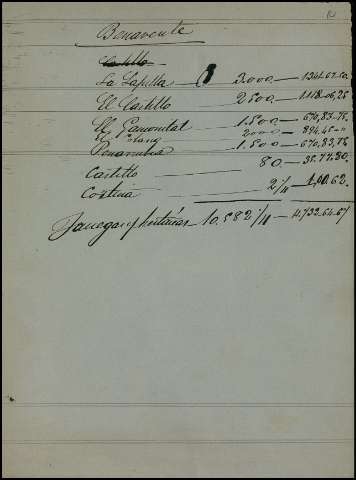 Benavente
Castillo
La Lapilla 3.000 — 1341.67.50
El Castillo 2500 — 1.118.06,25
El Gamonital 1.500 — 670,83-75
El 2000 — 894.45
Penarrubia 1.500 — 670,83,75
Castillo 80 — 35.77.80
Cortina 2/4 — 1,00.62
Fanegas y hectáreas 10.582 2/4 — 4.732.64.67